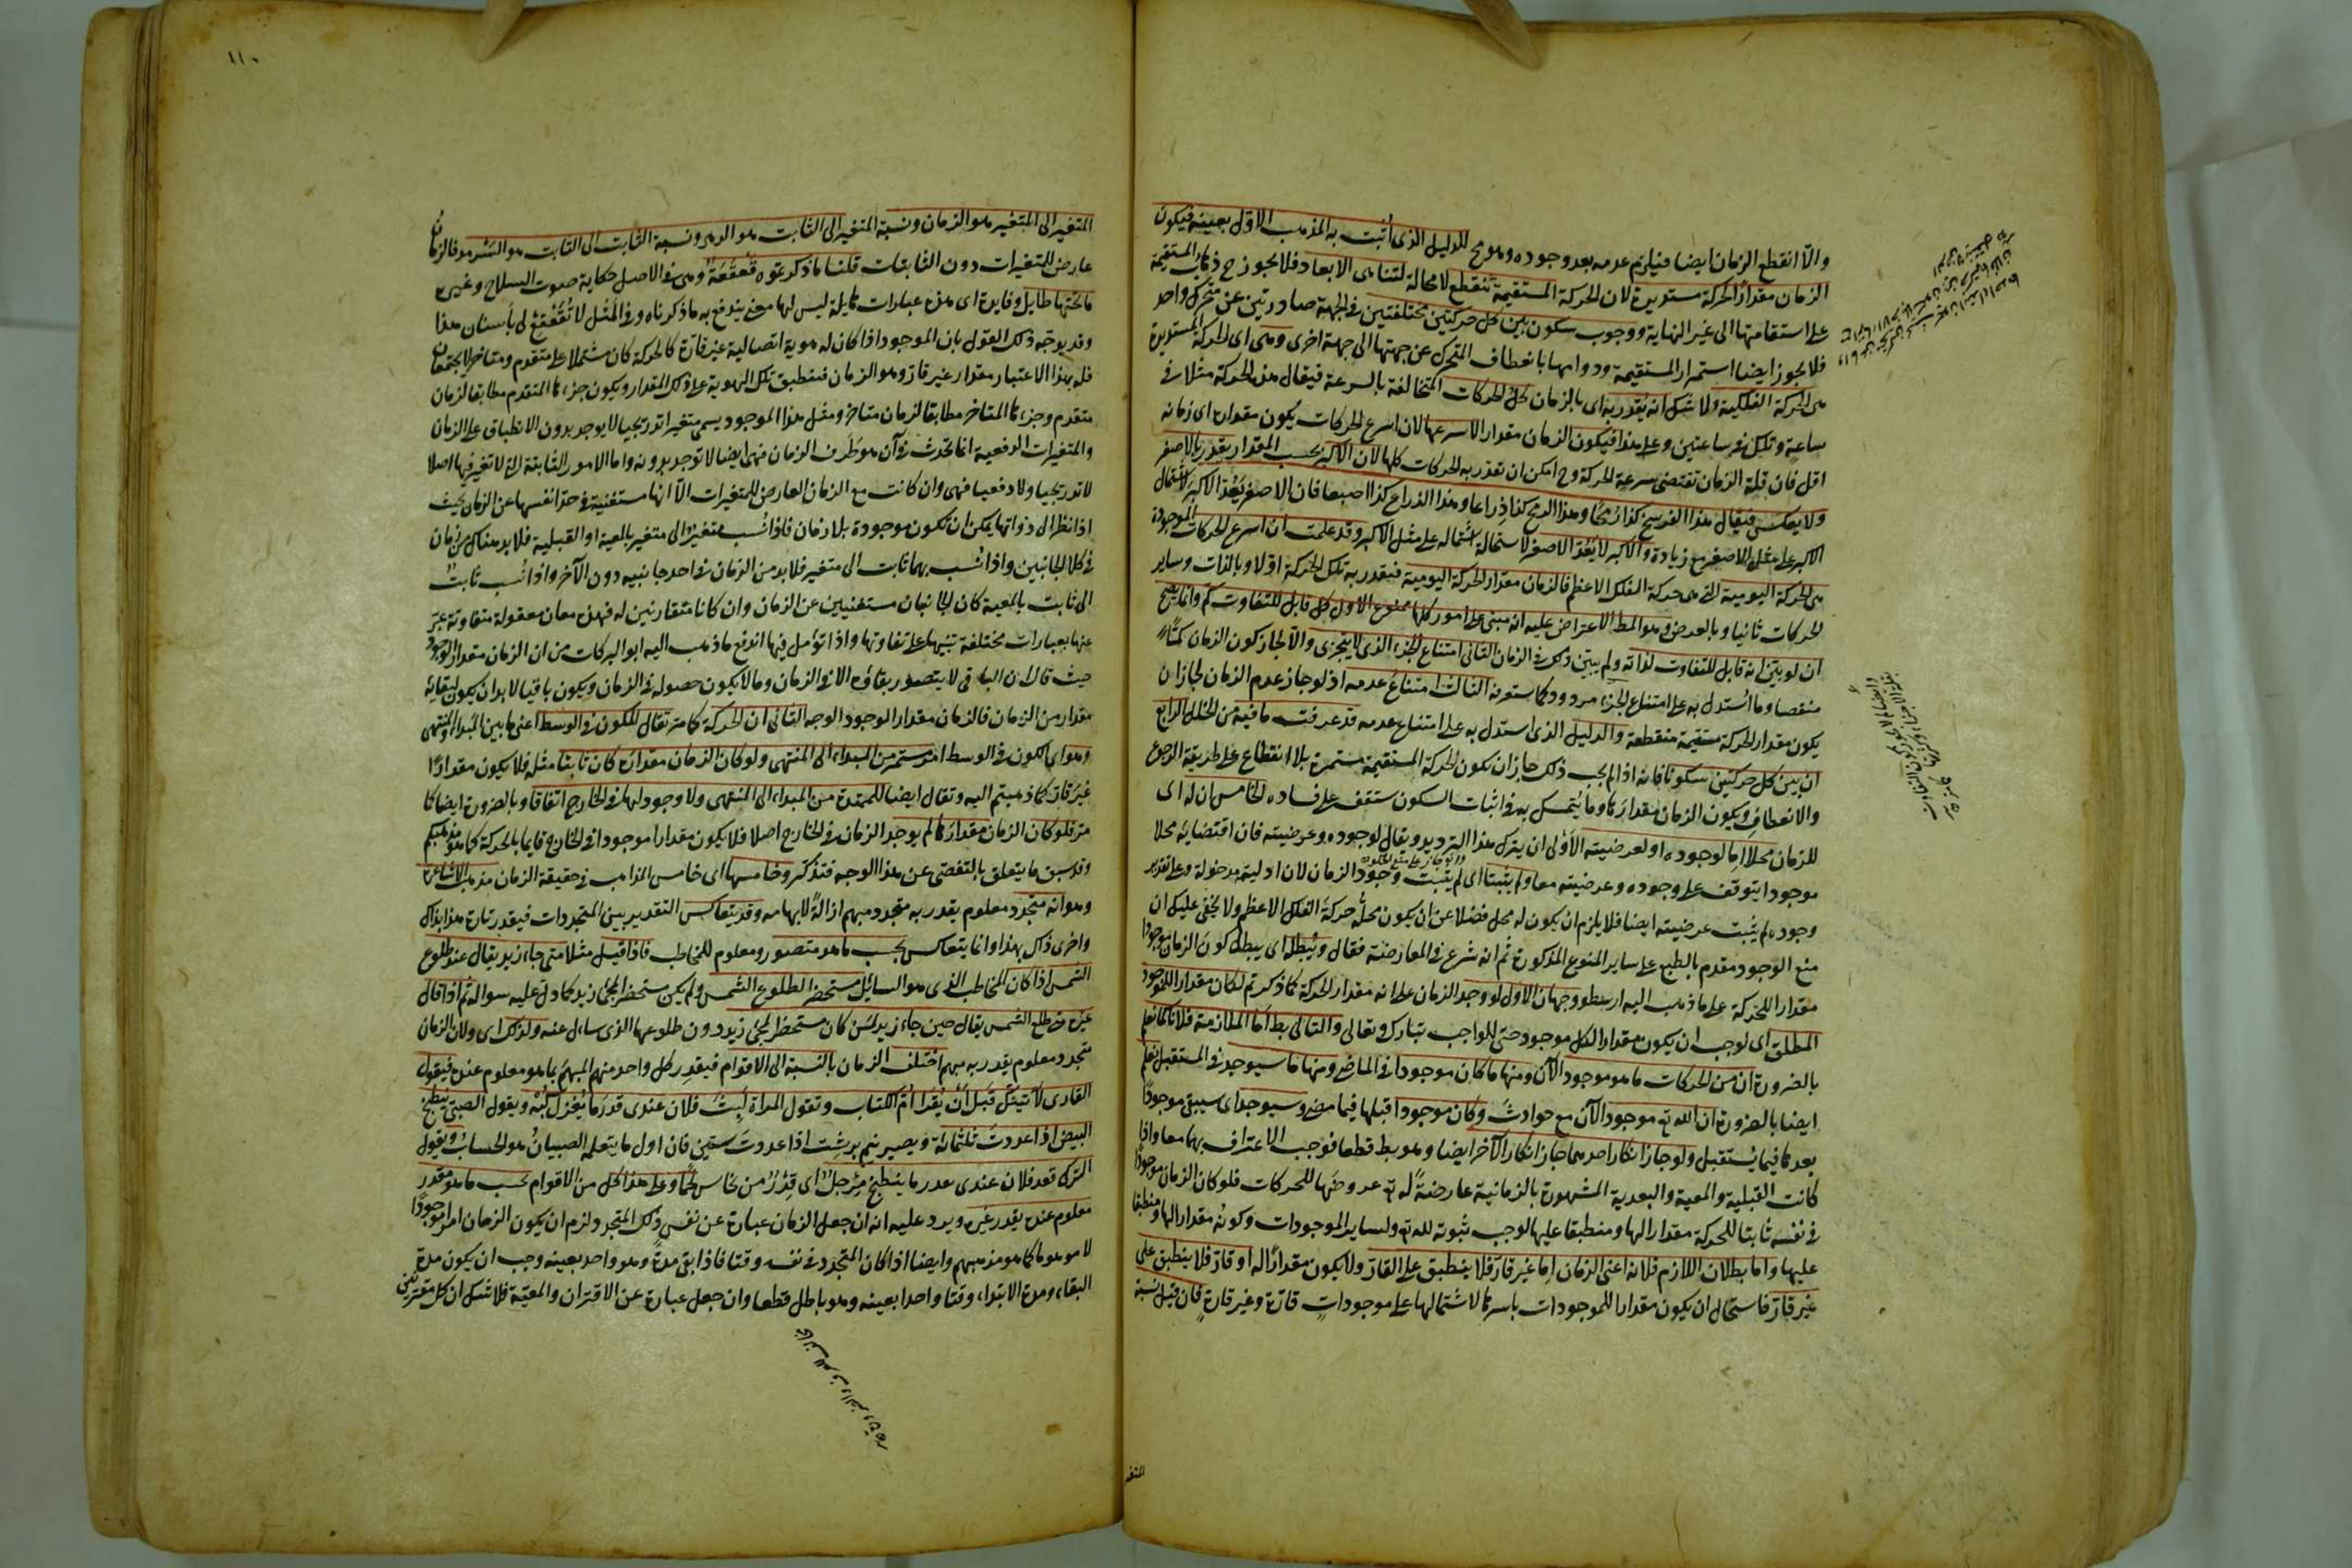 والا انقطع الزمان ايضا فيلزم عدمه بعد وجوده وهو مح للدليل الذى اثبت به المذهب الاول بعينه فيكون
الزمان مقدارا لحركة مستديرة لان الحركة المستقيمة تنقطع لا محالة لتناهى الابعاد فلا يجوز ح ذهاب المستقيمة
على استقامتها الى غير النهاية ووجوب سكون بين كل حركتين مختلفتين فى الجهة صادرتين عن متحرك واحد
فلا يجوز ايضا استمرار المستقيمة ودوامها بانعطاف المتحرك عن جهتها الى جهة اخرى وهى اى الحركة المستديرة
هى الحركة الفلكية ولا شك انه يقدر به اى بالزمان كل الحركات المتخالفة بالسرعة فيقال هذه الحركة مثلا فى
ساعة وتلك فى ساعتين وعلى هذا فيكون الزمان مقدارا لاسرعها لان اسرع الحركات يكون مقداره اى زمانه
اقل فان قلة الزمان تقتضى سرعة الحركة وح امكن ان تقدر به الحركات كلها لان الاكبر بحسب المقدار يقدر بالاصغر
ولا يعكس فيقال هذا الفرسخ كذا رمحا وهذا الرمح كذا ذراعا وهذا الذراع كذا اصبعا فان الاصغر يعد الاكبر لاشتمال
الاكبر على مثل الاصغر مع زيادة والاكبر لا يعد الاصغر لاستحالة اشتماله على مثل الاكبر وقد علمت ان اسرع الحركات الموجودة
هى الحركة اليومية التى هى حركة الفلك الاعظم فالزمان مقدار الحركة اليومية فيقدر به تلك الحركة اولا وبالذات وساير
الحركات ثانيا وبالعرض وهو المط الاعتراض عليه انه مبنى على امور كلها ممنوع الاول كل قابل للتفاوت كم وانما يصح
ان لو بين انه قابل للتفاوت لذاته ولم يبين ذلك فى الزمان الثانى امتناع الجزء الذى لا يتجزى والا لجاز كون الزمان كما
منفصلا وما استدل به على امتناع الجزء مردود كما ستعرفه الثالث امتناع عدمه اذ لو جاز عدم الزمان لجاز ان
يكون مقدارا لحركة مستقيمة منقطعة والدليل الذى استدل به على امتناع عدمه قد عرفت ما فيه من الخلل الرابع
ان بين كل حركتين سكونا فانه اذا لم يجب ذلك جاز ان يكون الحركة المستقيمة مستمرة بلا انقطاع على طريقة الرجوع
والانعطاف ويكون الزمان مقدارها وما يتمسك به فى اثبات السكون ستقف على فساده الخامس ان له اى
للزمان محلا اما لوجوده او لعرضيته الاولى ان يترك هذا الترديد ويقال لوجوده وعرضيته فان اقتضائه محلا
موجودا يتوقف على وجوده وعرضيته معا ولم يثبتا اى لم يثبت وجود الزمان لان ادليته مدخولة وعلى تقدير
وجوده لم يثبت عرضيته ايضا فلا يلزم ان يكون له محل فضلا عن ان يكون محله حركة الفلك الاعظم ولا يخفى عليك ان
منع الوجود مقدم بالطبع على ساير المنوع المذكورة ثم انه شرع فى المعارضة فقال ويبطله اى يبطل كون الزمان موجودا
مقدارا للحركة على ما ذهب اليه ارسطو وجهان الاول لو وجد الزمان على انه مقدار الحركة كما ذكرتم لكان مقدارا للوجود
المطلق اى لوجب ان يكون مقدارا لكل موجود حتى للواجب تبارك وتعالى والتالى بط اما الملازمة فلانا كما نعلم
بالضرورة ان من الحركات ما هو موجود الآن ومنها ما كان موجودا فى الماضى ومنها ما سيوجد فى المستقبل نعلم
ايضا بالضرورة ان الله تع موجود الآن مع حوادث وكان موجودا قبلها فيما مضى وسيوجد اى سيبقى موجودا
بعدها فيما يستقبل ولو جاز انكار احدهما جاز انكار الآخر ايضا وهو بط قطعا فوجب الاعتراف بهما معا واذا
كانت القبلية والمعية والبعدية المشهورة بالزمانية عارضة له تع عروضها للحركات فلو كان الزمان موجودا
فى نفسه ثابتا للحركة مقدارا لها ومنطبقا عليها لوجب ثبوته لله تع ولساير الموجودات وكونه مقدارا لها ومنطبقا
عليها واما بطلان اللازم فلانه اعنى الزمان اما غير قار فلا ينطبق على القار ولا يكون مقدارا له او قار فلا ينطبق على
غير قار فاستحال ان يكون مقدارا للموجودات باسرها لاشتمالها على موجودات قارة وغير قارة فان قيل نسبة
المتغير
١١٠
المتغير الى المتغير هو الزمان ونسبة المتغير الى الثابت هو الدهر ونسبة الثابت الى الثابت هو السرمد فالزمان
عارض للمتغيرات دون الثابتات قلنا ما ذكرتموه قعقعة وهى فى الاصل حكاية صوت السلاح وغيره
ما تحتها طايل وفايدة اى هذه عبارات هايلة ليس لها معنى يندفع به ما ذكرناه وفى المثل لا تقعقع لى بأسنان هذا
وقد يوجه ذلك القول بان الموجود اذا كان له هوية اتصالية غير قارة كالحركة كان مشتملا على متقدم ومتاخر لا يجتمعان
فله بهذا الاعتبار مقدار غير قار وهو الزمان فينطبق تلك الهوية على ذلك المقدار ويكون جزءها المتقدم مطابقا لزمان
متقدم وجزءها المتاخر مطابقا لزمان متاخر ومثل هذا الموجود يسمى متغيرا تدريجيا لا يوجد بدون الانطباق على الزمان
والمتغيرات الدفعية انما تحدث فى آن هو طرف الزمان فهى ايضا لا توجد بدونه واما الامور الثابتة التى لا تغير فيها اصلا
لا تدريجيا ولا دفعيا فهى وان كانت مع الزمان العارض للمتغيرات الا انها مستغنية فى حد انفسها عن الزمان بحيث
اذا نظر الى ذواتها يمكن ان تكون موجودة بلا زمان فاذا نسب متغير الى متغير بالمعية او القبلية فلا بد هناك من زمان
فى كلا الجانبين واذا نسب بهما ثابت الى متغير فلا بد من الزمان فى احد جانبيه دون الآخر واذا نسب ثابت
الى ثابت بالمعية كان الجانبان مستغنيين عن الزمان وان كانا متقارنين له فهذه معان معقولة متفاوتة عبر
عنها بعبارات مختلفة تنبيها على تفاوتها واذا تؤمل فيها اندفع ما ذهب اليه ابو البركات من ان الزمان مقدار الوجود
حيث قال ان الباقى لا يتصور بقاؤه الا فى الزمان وما لا يكون حصوله فى الزمان ويكون باقيا لا بد ان يكون لبقائه
مقدار من الزمان فالزمان مقدار الوجود الوجه الثانى ان الحركة كما مر تقال للكون فى الوسط اعنى ما بين المبدا والمنتهى
وهو اى الكون فى الوسط امر مستمر من المبداء الى المنتهى ولو كان الزمان مقداره كان ثابتا مثله فلا يكون مقدارا
غير قار كما ذهبتم اليه وتقال ايضا للممتدة من المبداء الى المنتهى ولا وجود لها فى الخارج اتفاقا وبالضرورة ايضا كما
مر فلو كان الزمان مقدارها لم يوجد الزمان فى الخارج اصلا فلا يكون مقدارا موجودا فى الخارج قايما بالحركة كما هو مذهبكم
وقد سبق ما يتعلق بالتفصى عن هذا الوجه فتذكر وخامسها اى خامس المذاهب فى حقيقة الزمان مذهب الاشاعرة
وهو انه متجدد معلوم يقدر به متجدد مبهم ازالة لابهامه وقد يتعاكس التقدير بين المتجددات فيقدر تارة هذا بذاك
واخرى ذاك بهذا وانما يتعاكس بحسب ما هو متصور ومعلوم للمخاطب فاذا قيل مثلا متى جاء زيد يقال عند طلوع
الشمس اذا كان المخاطب الذى هو السائل مستحضرا لطلوع الشمس ولم يكن مستحضرا لمجئ زيد كما دل عليه سواله ثم اذا قال
غيره متى طلع الشمس يقال حين جاء زيد لمن كان مستحضرا لمجئ زيد دون طلوعها الذى سال عنه ولذلك اى ولان الزمان
متجدد معلوم يقدر به مبهم اختلف الزمان بالنسبة الى الاقوام فيقدر كل واحد منهم المبهم بما هو معلوم عنده فيقول
القارى لآتينك قبل ان يقرا ام الكتاب وتقول المراة لبث فلان عندى قدر ما يغزل كبة ويقول الصبى ينطبخ
البيض اذا عددت ثلثمائة ويصير نيم برشت اذا عددت ستين فان اول ما يتعلمه الصبيان هو الحساب ويقول
التركى قعد فلان عندى بقدر ما ينطبخ مرجل اى قدر من نحاس لحما وعلى هذا كل من الاقوام بحسب ما هو مقدر
معلوم عنده يقدر غيره ويرد عليه انه ان جعل الزمان عبارة عن نفس ذلك المتجدد لزم ان يكون الزمان امرا موجودا
لا موهوما كما هو مذهبهم وايضا اذا كان المتجدد فى نفسه وقتا فاذا بقى مدة وهو واحد بعينه وجب ان يكون مدة
البقاء ومدة الابتداء وقتا واحدا بعينه وهو باطل قطعا وان جعل عبارة عن الاقتران والمعية فلا شك ان كل مقترنين